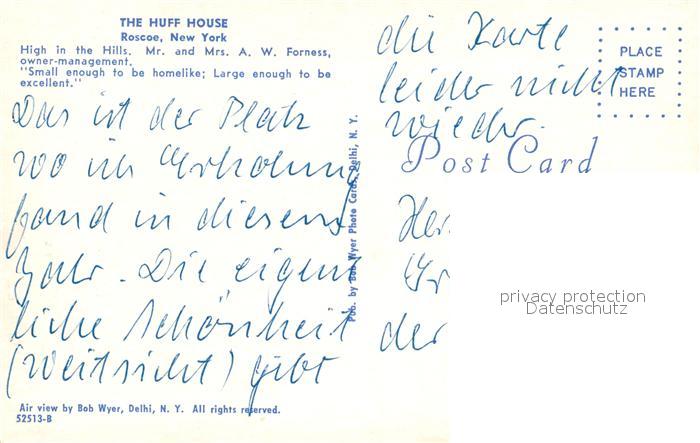 THE HUFF HOUSE
Roscoe, New York
High in the Hills. Mr. and Mrs. A. W. Forness,
owner-management.
"Small enough to be homelike; Large enough to be
excellent."
Das ist der Platz
wo ich Erholung
fand in diesem
Jahr. Die eigent
liche Schönheit
(Weitsicht) gibt
die Karte
leider nicht
wieder.
Her
Gr
der
PLACE
STAMP
HERE
Post Card
Pub. by Bob Wyer Photo Cards, Delhi, N. Y.
privacy protection
Datenschutz
Air view by Bob Wyer, Delhi, N. Y. All rights reserved.
52513-B